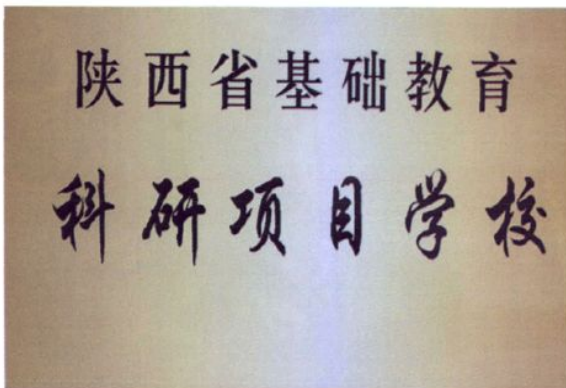 陕西省基础教育
科研项目学校